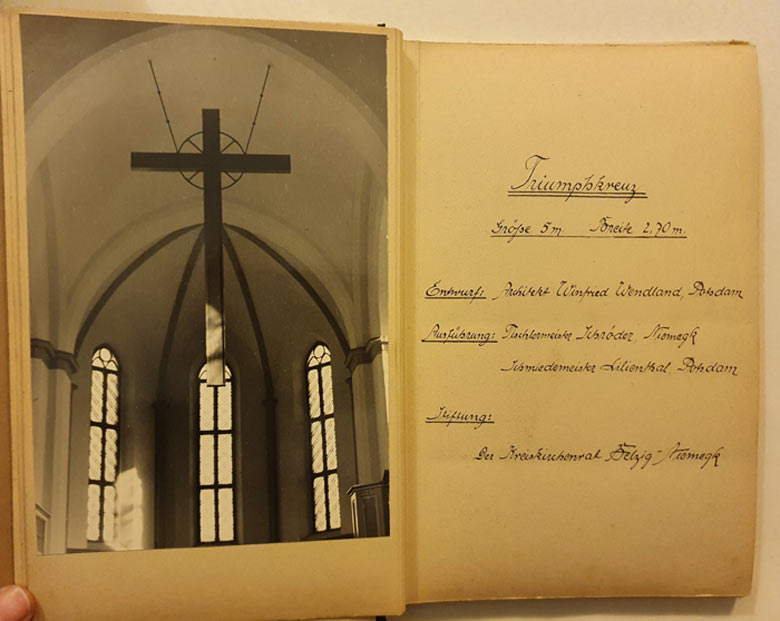 Triumphkreuz
Größe 5m Breite 2,70 m.
Entwurf: Architekt Winfried Wendland, Potsdam
Ausführung: Tischlermeister Schröder, Niemegk
Schmiedemeister Lilienthal, Potsdam
Stiftung:
Der Kreiskirchenrat Belzig-Niemegk